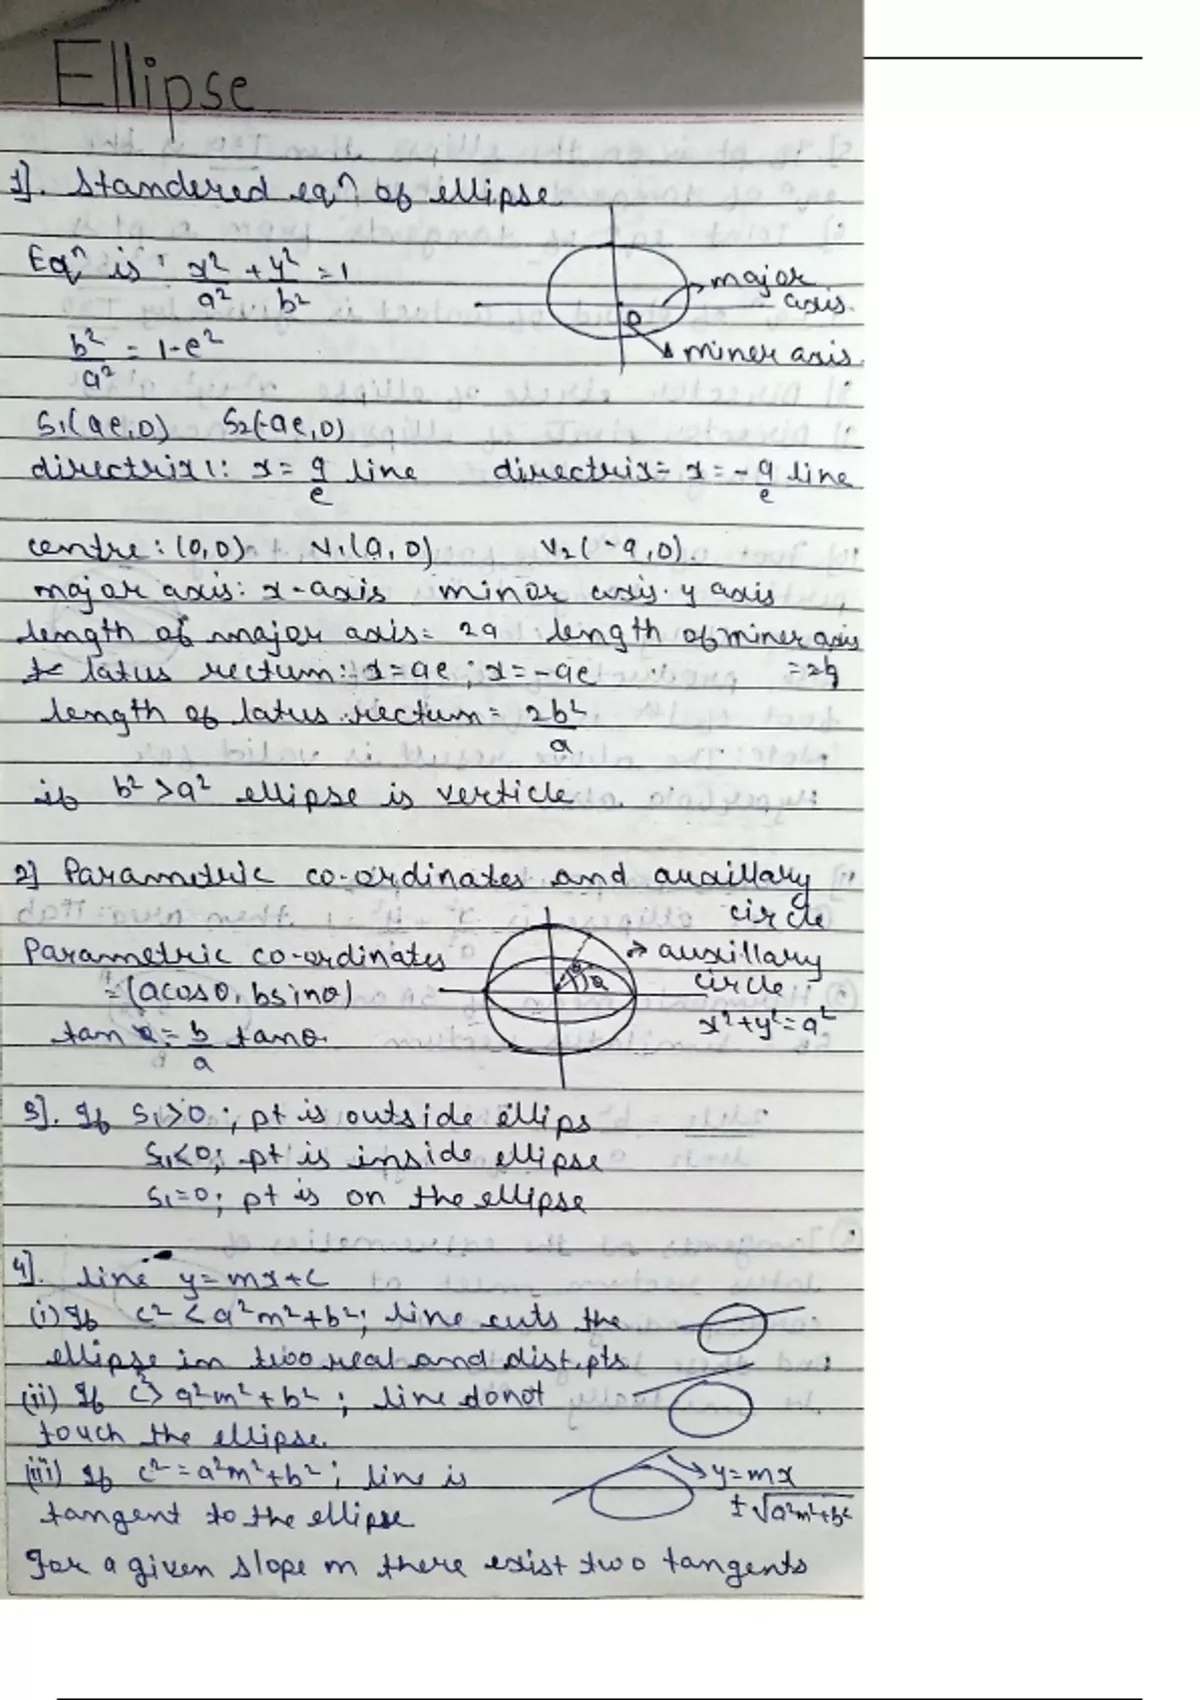 Ellipse
1]. Standered eqⁿ of ellipse
Eqⁿ is : x²/a² + y²/b² = 1
major axis.
b²/a² = 1-e²
miner axis
S₁(ae,0) S₂(-ae,0)
directrix 1: x = a/e line directrix = x = -a/e line
centre: (0,0) V₁(a,0) V₂(-a,0)
major axis: x-axis minor axis. y axis
length of major axis = 2a length of miner axis
latus rectum: x=ae ; x=-ae =2b
length of latus rectum = 2b²/a
if b² > a² ellipse is verticle
2] Parametric co-ordinates and auxillary
circle
Parametric co-ordinates
→ auxillary
=(acosθ, bsinθ)
circle
x²+y²=a²
tan α = b/a tanθ
3]. If S₁>0 ; pt is outside ellips
S₁<0; pt is inside ellipse
S₁=0; pt is on the ellipse
4]. line y=mx+c
(i) If c² < a²m²+b²; line cuts the
ellipse in two real and dist. pts
(ii) If c² > a²m²+b² ; line donot
touch the ellipse.
(iii) If c² = a²m²+b² ; line is
y=mx
± √a²m²+b²
tangent to the ellipse
For a given slope m there exist two tangents